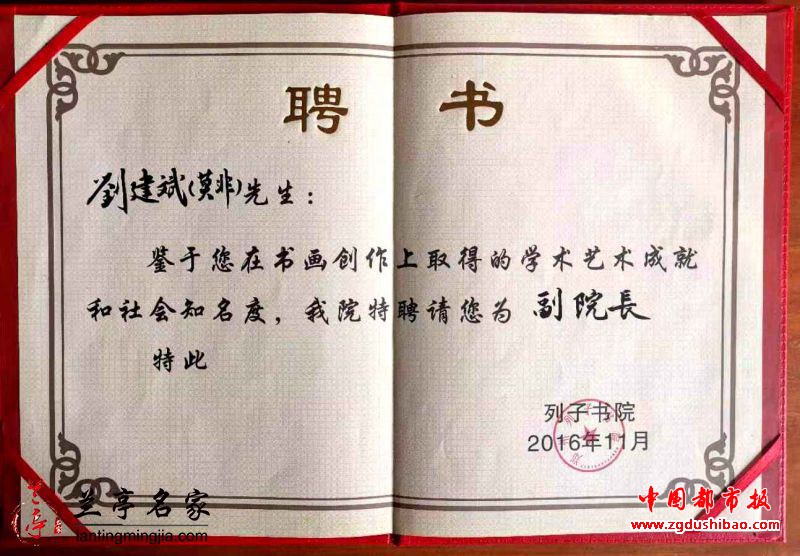 聘书
劉建斌(莫非)先生：
鉴于您在书画创作上取得的学术艺术成就
和社会知名度，我院特聘请您为 副院長
特此
列子书院
2016年11月
兰亭名家
lantingmingjia.com
中国都市报
www.zgdushibao.com